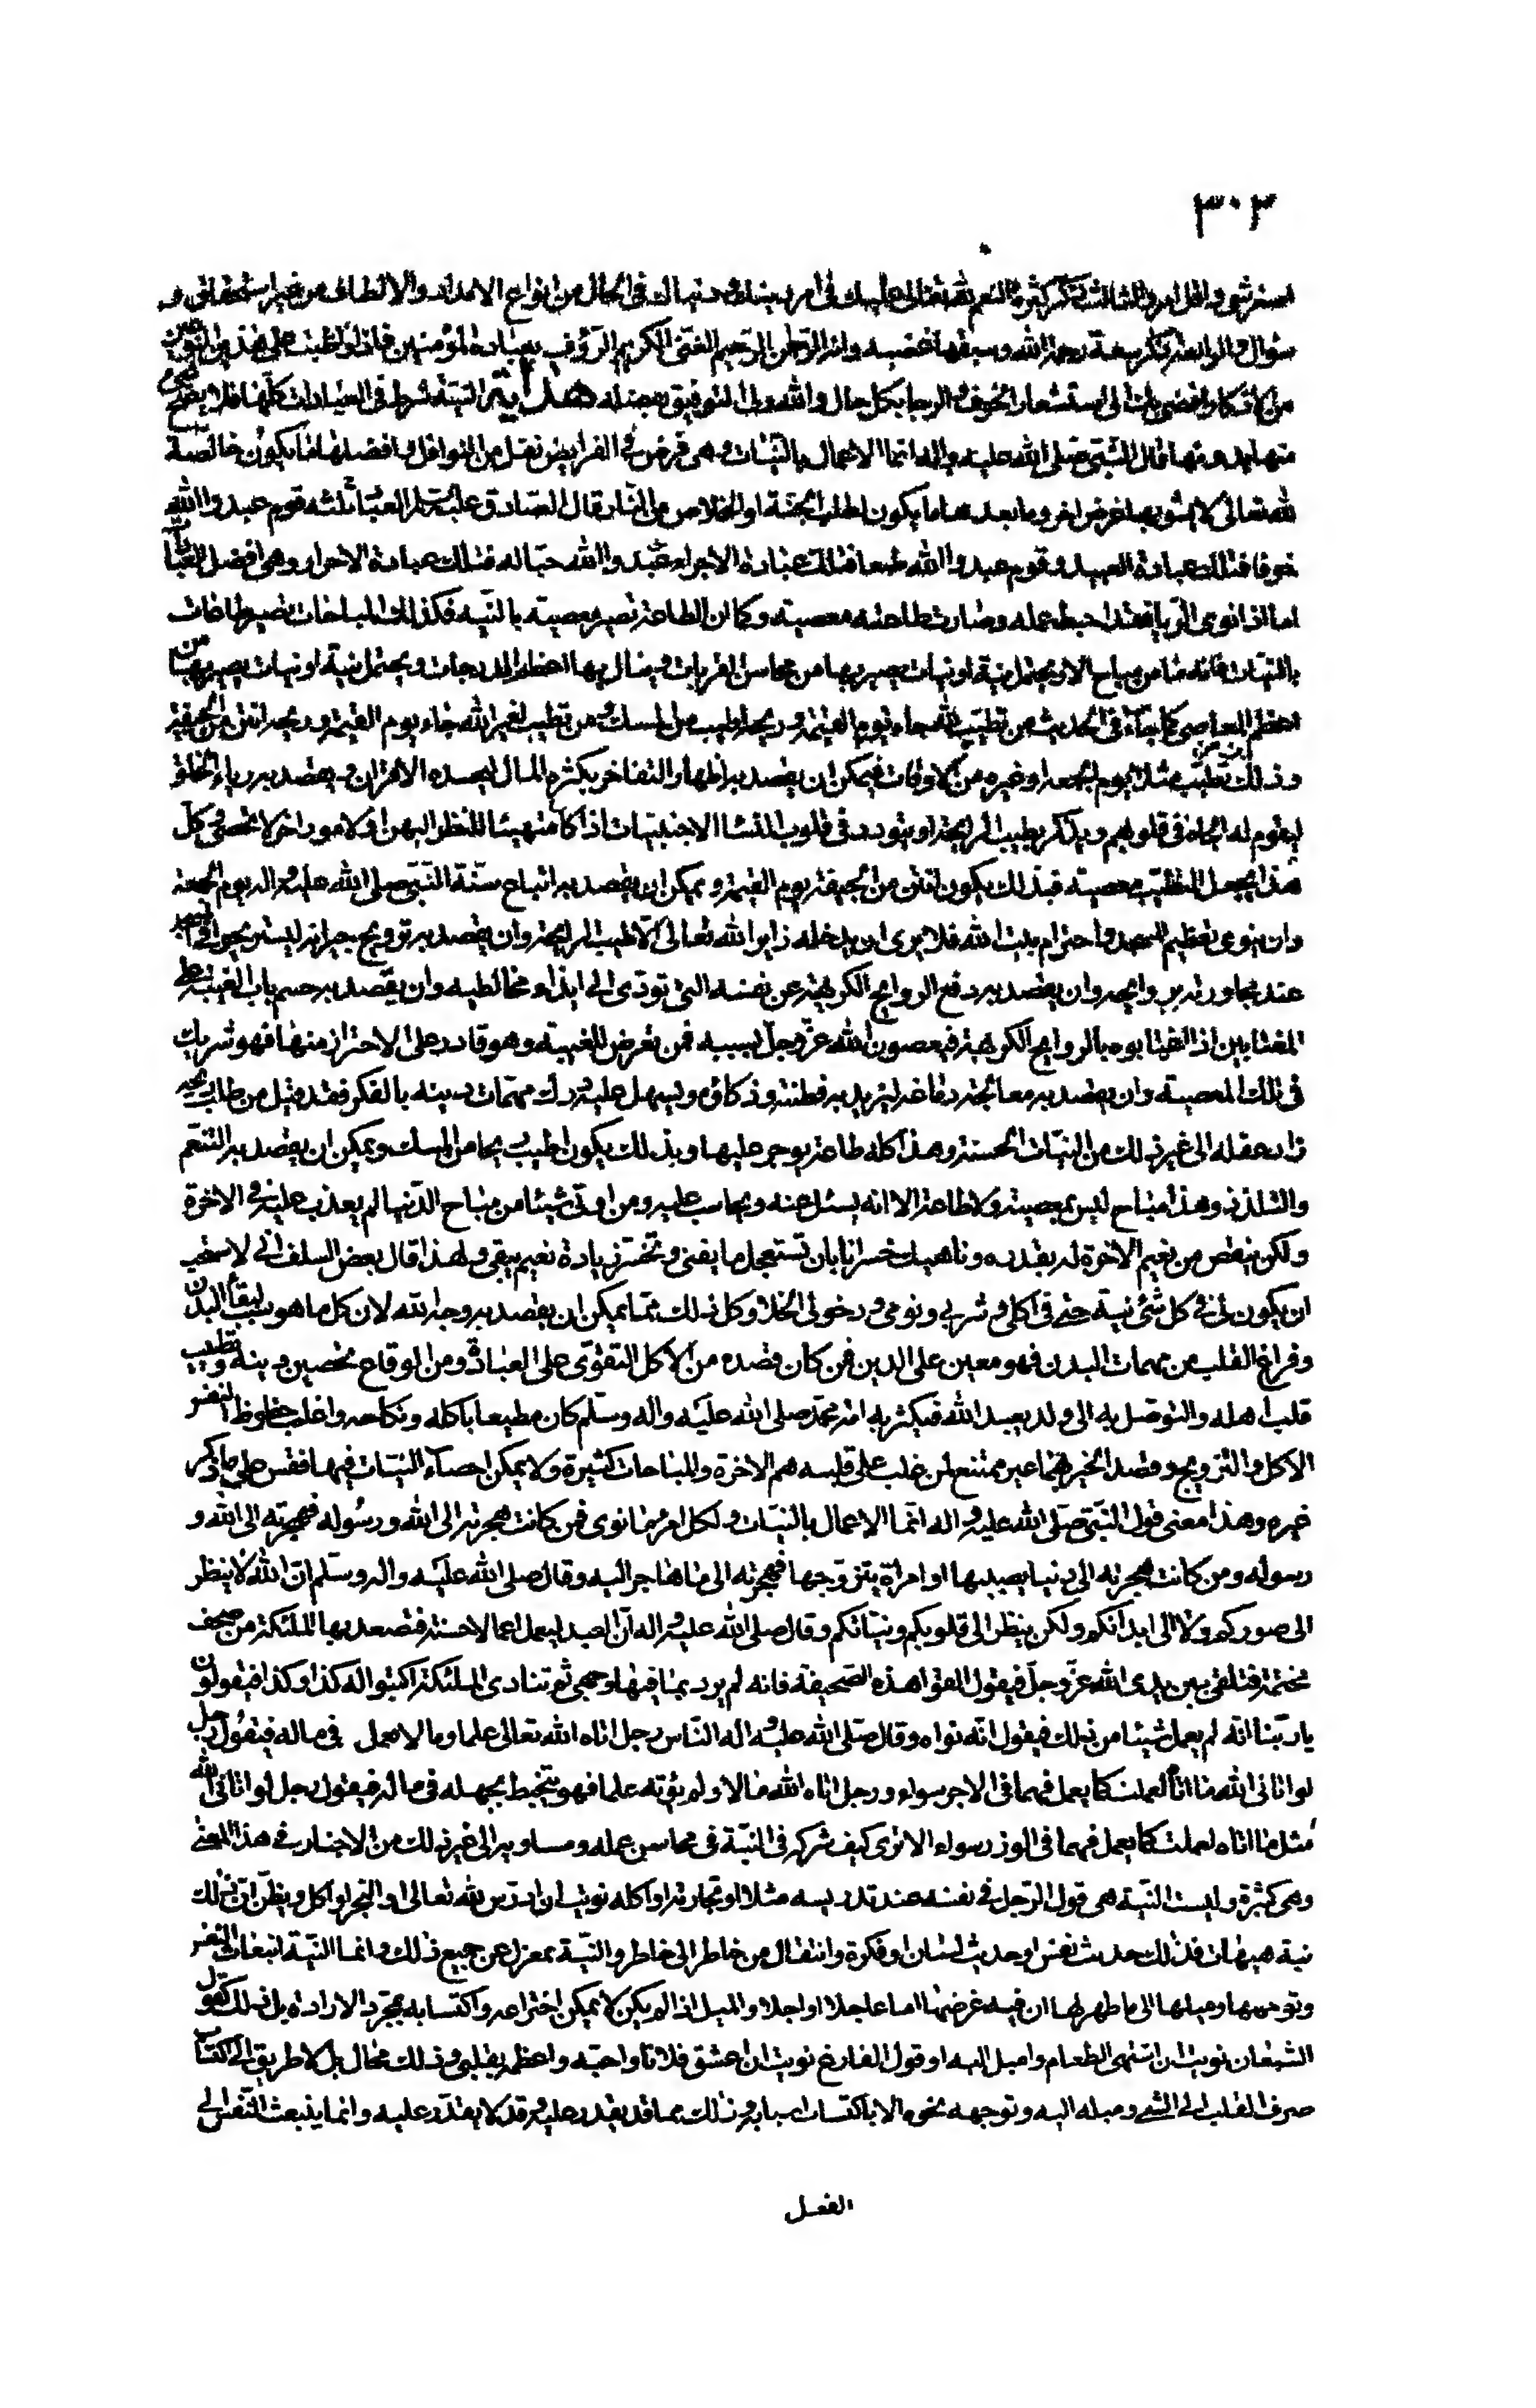 ٣٠٣
والثالثة تذكر كثرة النعم لله تعالى عليك في امر دينك ودنياك في الحال من انواع الامداد والالطاف من غير استحقاق و
سؤال والرابعة تذكر سعة رحمة الله وسبقها غضبه وانه الرحمن الرحيم الغنى الكريم الرؤف بعباده المؤمنين فاذا واظبت على هذين النوعين
من الاذكار افضى بك الى استشعار الخوف والرجا بكل حال والله ولى التوفيق بفضله هداية النية شرط في العبادات كلها فلا يصح شئ
منها بدونها قال النبى صلى الله عليه واله انما الاعمال بالنيات وهى فرض في الفرايض نفل من النوافل وافضلها ما يكون خالصة
لله تعالى لا يشوبها غرض اخر وما بعدها ما يكون لطلب الجنة او الخلاص من النار قال الصادق عليه السلام العباد ثلثه قوم عبدوا الله
خوفا فتلك عبادة العبيد وقوم عبدوا الله طمعا فتلك عبادة الاجراء وقوم عبدوا الله حبا له فتلك عبادة الاحرار وهى افضل العبادة
اما اذا نوى الريا فقد احبط عمله وصارت طاعته معصية وكما ان الطاعة تصير معصية بالنيه فكذلك المباحات تصير طاعات
بالنيات فانه ما من مباح الا ويحتمل نية او نيات يصير بها من محاسن القربات وينال بها اعظم الدرجات ويحتمل نية او نيات يصير بها من
اعظم المعاصى كما جاء في الحديث من تطيب لله جاء يوم القيمة وريحه اطيب من المسك ومن تطيب لغير الله جاء يوم القيمة وريحه انتن من الجيفة
وذلك ان من تطيب مثلا يوم الجمعة او غيره من الاوقات فيمكن ان يقصد به اظهار التفاخر بكثرة المال ليحسده الاقران ويقصد به رياء الخلق
ليقوم له الجاه في قلوبهم ويذكر بطيب الرايحة او يتودد في قلوب النساء الاجنبيات اذا كان متهيئا للنظر اليهن او لامور اخر لا تحصى وكل
هذا يجعل التطيب معصية فبذلك يكون انتن من الجيفة يوم القيمة ويمكن ان يقصد به اتباع سنة النبى صلى الله عليه واله يوم الجمعة
وان ينوى تعظيم المسجد واحترام بيت الله فلا يرى ان يدخله زايرا لله تعالى الا طيب الرايحة وان يقصد به ترويح جيرانه ليستريحوا في المسجد
عند مجاورته بروايحه وان يقصد به دفع الروايح الكريهة عن نفسه التى تودى الى ايذاء مخالطيه وان يقصد به حسم باب الغيبة عن
المغتابين اذا اغتابوه بالروايح الكريهة فيعصون الله عز وجل بسببه فمن تعرض للغيبة وهو قادر على الاحتراز منها فهو شريك
في تلك المعصية وان يقصد به معالجة دماغه ليزيد به فطنته وذكاؤه ويسهل عليه درك مهمات دينه بالفكر فقد قيل من طاب ريحه
زاد عقله الى غير ذلك من النيات الحسنة وهذا كله طاعة يوجر عليها وبذلك يكون اطيب ريحا من المسك ويمكن ان يقصد به التنعم
والتلذذ وهذا مباح ليس بمعصية ولا طاعة الا انه يسئل عنه ويحاسب عليه ومن اوتى شيئا من مباح الدنيا لم يعذب عليه في الاخرة
ولكن ينقص من نعيم الاخرة له بقدره وناهيك خسرانا بان تستعجل ما يفنى وتخسر زيادة نعيم يبقى ولهذا قال بعض السلف انى لاستحب
ان يكون لى في كل شئ نية حتى في اكلى وشربى ونومى ودخولى الخلا وكل ذلك مما يمكن ان يقصد به وجه الله لان كل ما هو سبب لبقاء البدن
وفراغ القلب من مهمات البدن فهو معين على الدين فمن كان قصده من الاكل التقوى على العبادة ومن الوقاع تحصين دينه وتطييب
قلب اهله والتوصل به الى ولد يعبد الله فيكثر به امة محمد صلى الله عليه واله وسلم كان مطيعا باكله ونكاحه واغلب حظوظ النفس
الاكل والتزويج وقصد الخير بهما غير ممتنع لمن غلب على قلبه هم الاخرة والمباحات كثيرة ولا يمكن احصاء النيات فيها فقس على ما ذكر
غيره وهذا معنى قول النبى صلى الله عليه واله انما الاعمال بالنيات ولكل امرئ ما نوى فمن كانت هجرته الى الله ورسوله فهجرته الى الله و
رسوله ومن كانت هجرته الى دنيا يصيبها او امراة يتزوجها فهجرته الى ما هاجر اليه وقال صلى الله عليه واله وسلم ان الله لا ينظر
الى صوركم ولا الى ابدانكم ولكن ينظر الى قلوبكم ونياتكم وقال صلى الله عليه واله ان العبد ليعمل اعمالا حسنة فتصعد بها الملئكة من صحف
مختمة فتلقى بين يدى الله عز وجل فيقول القوا هذه الصحيفة فانه لم يرد بما فيها وجهى ثم تنادى الملئكة اكتبوا له كذا وكذا فيقولون
يا ربنا انه لم يعمل شيئا من ذلك فيقول انه نواه وقال صلى الله عليه واله الناس رجل اتاه الله تعالى علما ومالا يعمل في ماله فيقول رجل
لو اتانى الله ما اتاه لعملت كما يعمل فهما في الاجر سواء ورجل اتاه الله مالا ولم يؤته علما فهو يتخبط بجهله في ماله فيقول رجل لو اتانى الله
مثل ما اتاه لعملت كما يعمل فهما في الوزر سواء الا ترى كيف شركه في النية في محاسن عمله ومساويه الى غير ذلك من الاخبار في هذا المعنى
وهى كثيرة وليست النية هى قول الرجل في نفسه عند تدريسه مثلا او تجارته او اكله نويت ان ادرس لله تعالى او اتجر او اكل ويظن ان ذلك
نية هيهات فذلك حديث نفس او حديث لسان او فكرة وانتقال من خاطر الى خاطر والنية بمعزل عن جميع ذلك وانما النية انبعاث النفس
وتوجهها وميلها الى ما ظهر لها ان فيه غرضها اما عاجلا او اجلا والميل اذا لم يكن لا يمكن اختراعه واكتسابه بمجرد الارادة بل ذلك كقول
الشبعان نويت ان اشتهى الطعام واميل اليه او قول الفارغ نويت ان اعشق فلانا واحبه واعظمه بقلبى وذلك محال بل لا طريق الى اكتساب
صرف القلب الى الشئ وميله اليه وتوجهه نحوه الا باكتساب اسبابه وذلك مما قد يقدر عليه وقد لا يقدر عليه وانما ينبعث النفس الى
الفعل